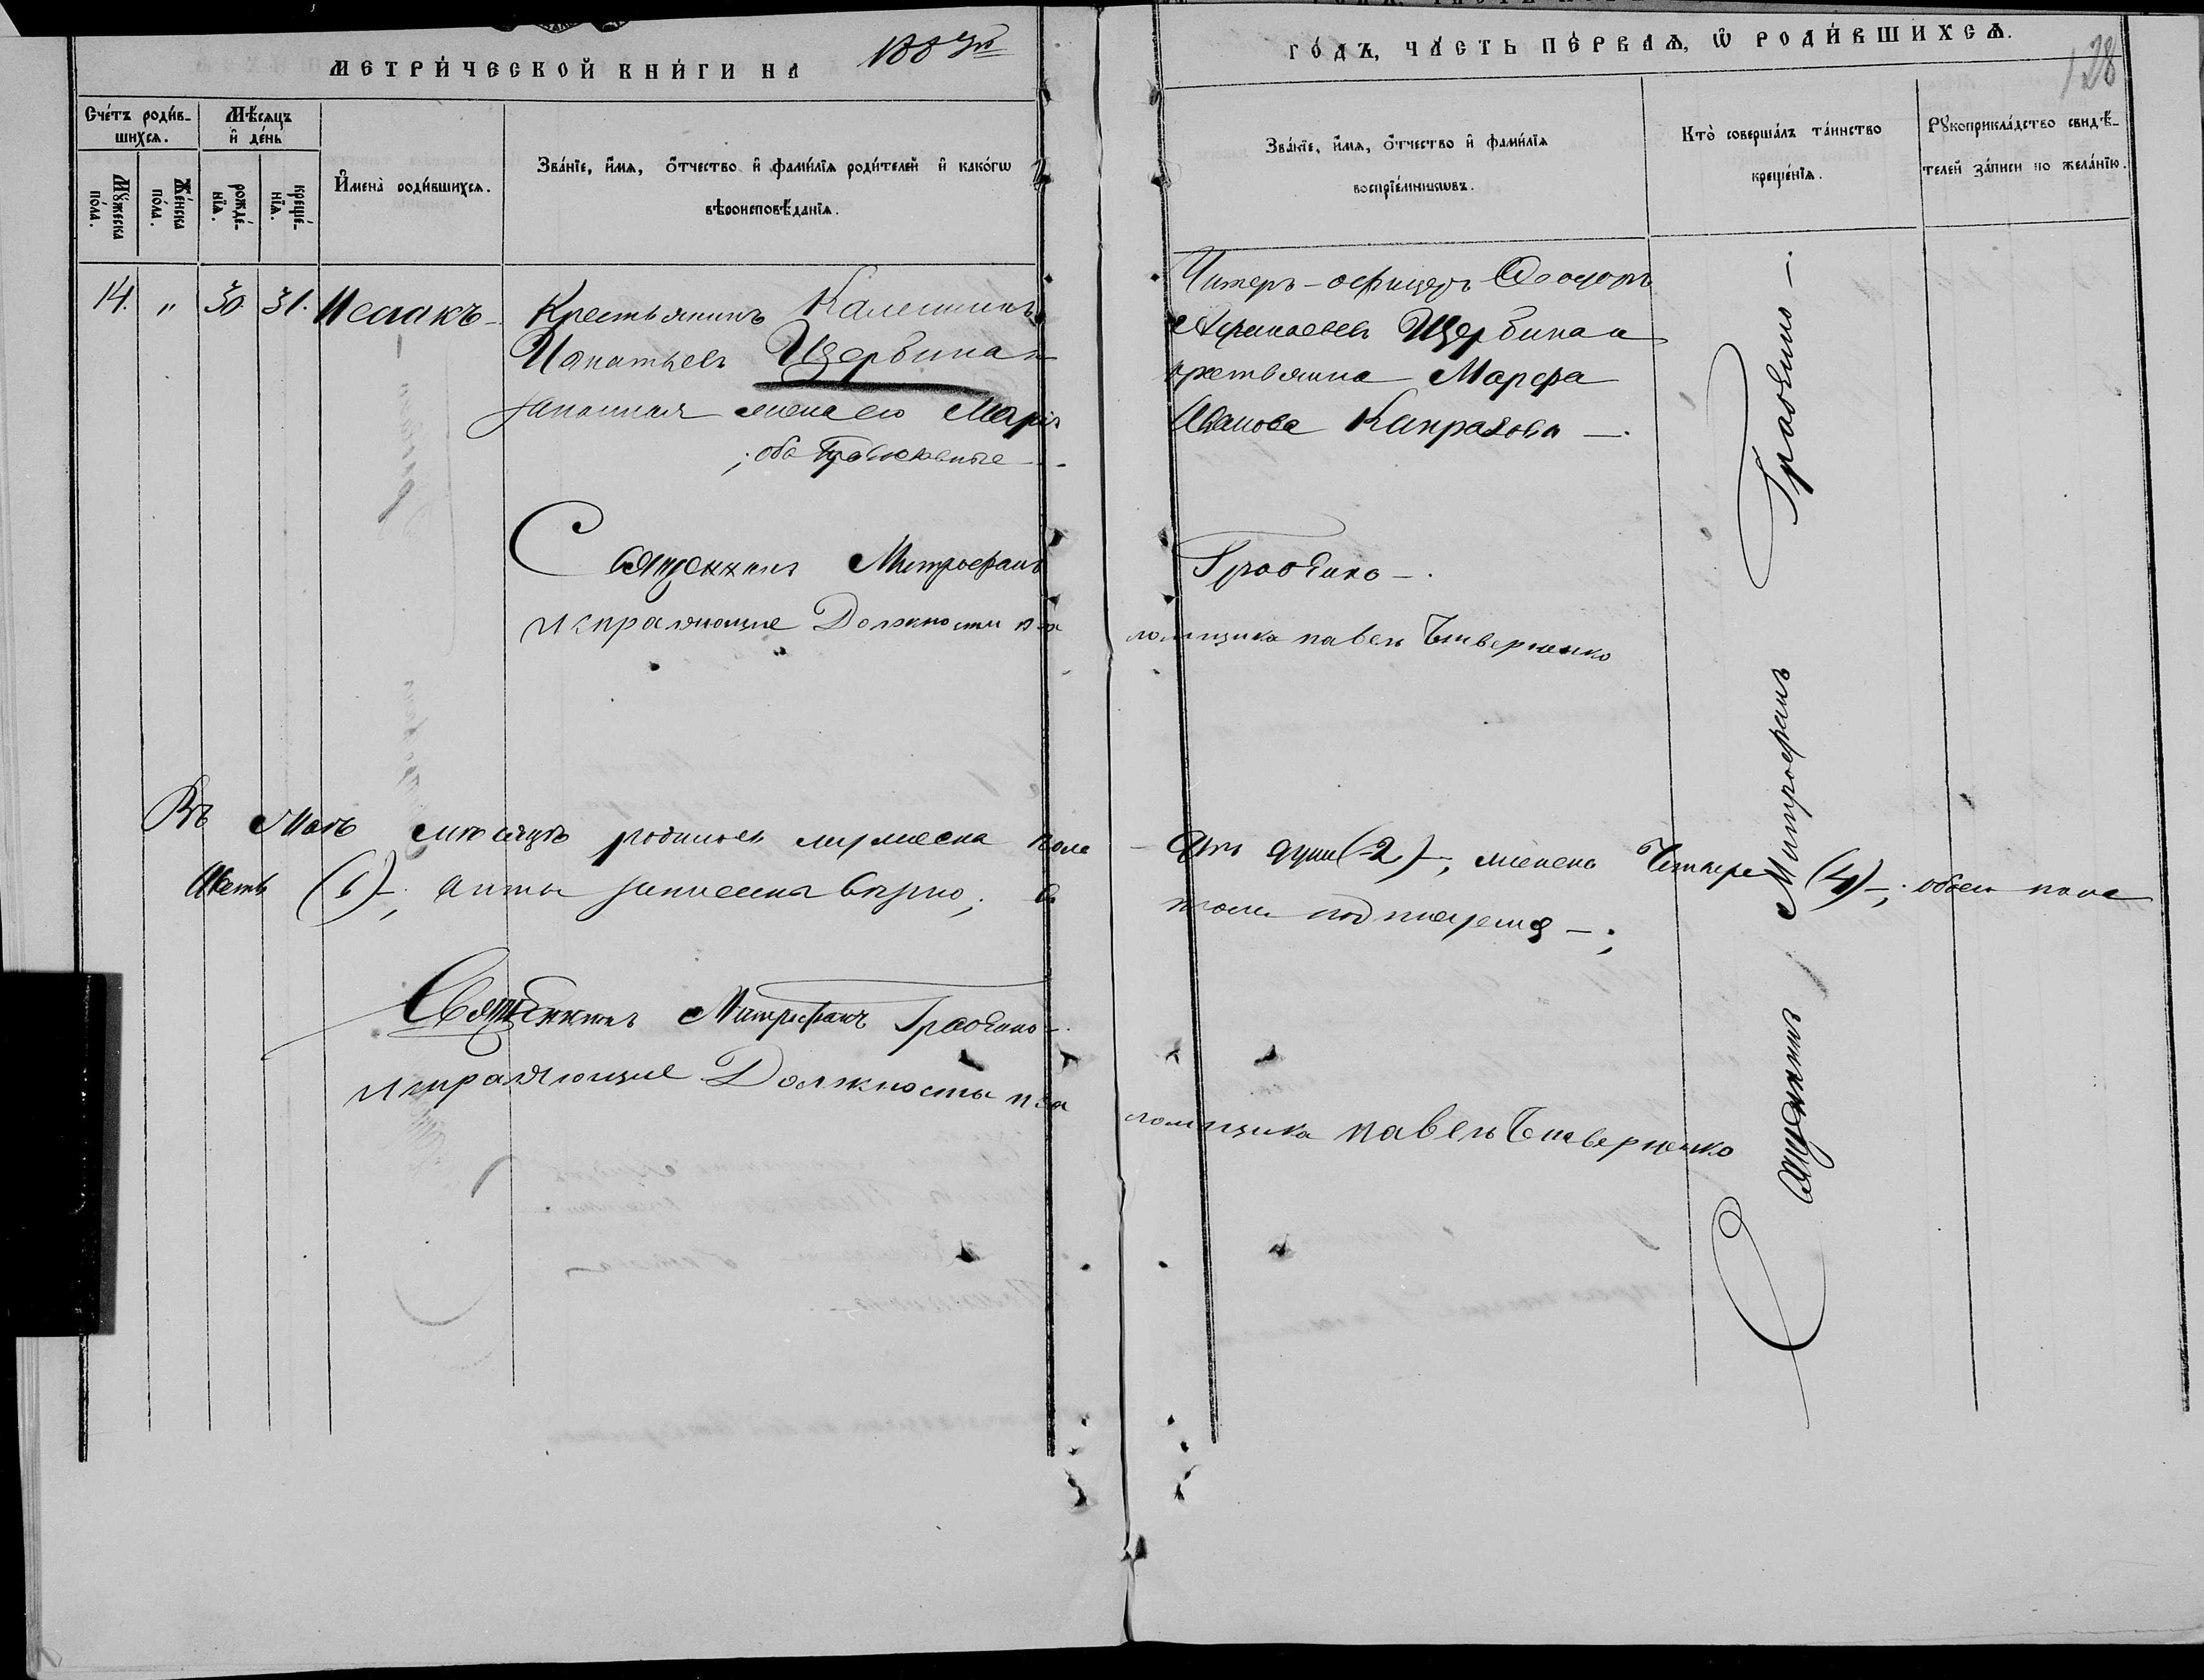 МЕТРИ́ЧЕСКОЙ КНИ́ГИ НА 1883й
ГО́ДЪ, ЧА́СТЬ ПЕ́РВАѦ, Ѡ҆ РОДИ́ВШИХСѦ.
128
Сче́тъ роди́в-
шихсѧ.
Мѣ́сѧцъ
и҆ де́нь
Мꙋ́жеска
по́ла.
Же́нска
по́ла.
рожде́-
нїѧ.
креще́-
нїѧ.
И҆мена̀ роди́вшихсѧ.
Зва́нїе, и҆́мѧ, ѻ҆́тчество и҆ фами́лїѧ роди́телей и҆ како́гѡ
вѣроисповѣ́данїѧ.
Зва́нїе, и҆́мѧ, ѻ҆́тчество и҆ фами́лїѧ
воспрїе́мникѡвъ.
Кто̀ соверша́лъ та́инство
креще́нїѧ.
Рꙋкоприкла́дство свидѣ́-
телей за́писи по жела́нїю.
14. " 30. 31. Исаакъ Крестьянинъ Калинникъ
Игнатьевъ Щербина и
законная жена его Марія
; оба Православные
Унтеръ-офицеръ Ѳеодоръ
Щербина и
крестьянка Марѳа
Иванова
Священникъ Митрофанъ Грабенко
Священникъ Митрофанъ Грабенко
исправляющие Должность пса
ломщика павелъ Чтверненко
Въ Маѣ мѣсяцѣ родилось мужеска пола двѣ души (2), женска Четыре (4); обоего пола
шесть (6); акты записаны вѣрно; въ томъ подписуемся
Священникъ Митрофанъ Грабенко
исправляющие Должность пса
ломщика павелъ Чтверненко